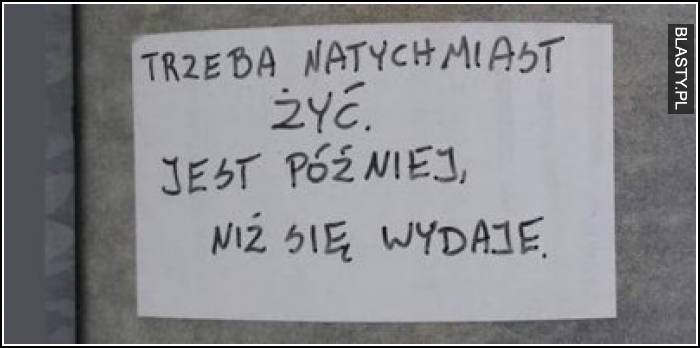 TRZEBA NATYCHMIAST
ŻYĆ.
JEST PÓŹNIEJ,
NIŻ SIĘ WYDAJE.
BLASTY.PL